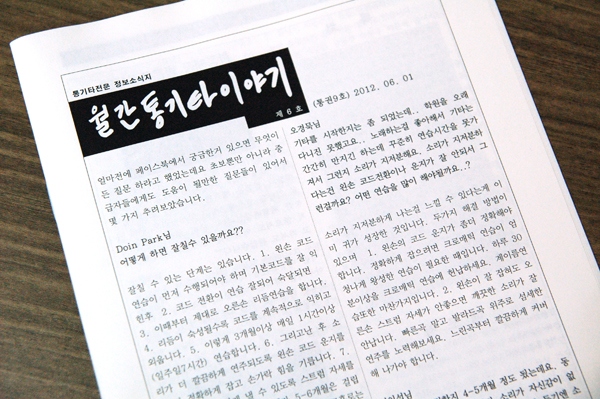 통기타전문 정보소식지
월간통기타이야기
제 6 호
(통권9호) 2012. 06. 01
얼마전에 페이스북에서 궁금한거 있으면 무엇이
든 질문 하라고 했었는데요 초보뿐만 아니라 중
급자들에게도 도움이 될만한 질문들이 있어서
몇 가지 추려보았습니다.
Doin Park님
어떻게 하면 잘칠수 있을까요??
잘칠 수 있는 단계는 있습니다. 1. 왼손 코드
연습이 먼저 수행되어야 하며 기본코드를 잘 익
힌후 2. 코드 전환이 연습 잘되어 숙달되면
3. 이때부터 제대로 오른손 리듬연습을 합니다.
4. 리듬이 숙성될수록 코드를 계속적으로 익히고
외웁니다. 5. 이렇게 3개월이상 매일 1시간이상
(일주일7시간) 연습합니다. 6. 그리고난 후 소
리가 더 깔끔하게 연주되도록 왼손 코드 운지를
정확하게 잡고 손가락 힘을 기릅니다. 7.
낼 수 있도록 스트럼 자세를
5-6개월은 걸립
오경묵님
기타를 시작한지는 좀 되었는데.. 학원을 오래
다니진 못했고요.. 노래하는걸 좋아해서 기타는
간간히 만지긴 하는데 꾸준히 연습시간을 못가
져서 그런지 소리가 지저분해요. 소리가 지저분하
다는건 왼손 코드전환이나 운지가 잘 안되서 그
런걸까요? 어떤 연습을 많이 해야될까요..?
소리가 지저분하게 나는걸 느낄 수 있다는게 이
미 귀가 상상한 것입니다. 두가지 해결 방법이
있으며 1. 왼손의 코드 운지가 좀더 정확해야
합니다. 정확하게 잡으려면 크로매틱 연습이 엄
청나게 왕성한 연습이 필요한 때입니다. 하루 30
분이상을 크로매틱 연습에 헌납하세요. 게이름연
습또한 마찬가지입니다. 2. 왼손이 잘 잡혀도 오
른손 스트럼 자세가 안좋으면 깨끗한 소리가 잘
안납니다. 빠른곡 말고 발라드곡 위주로 섬세한
연주를 노려해보세요. 느린곡부터 깔끔하게 커버
해 나가야 합니다.
4-5개월 정도 됬는데요. 동
소리가 자신감이 없